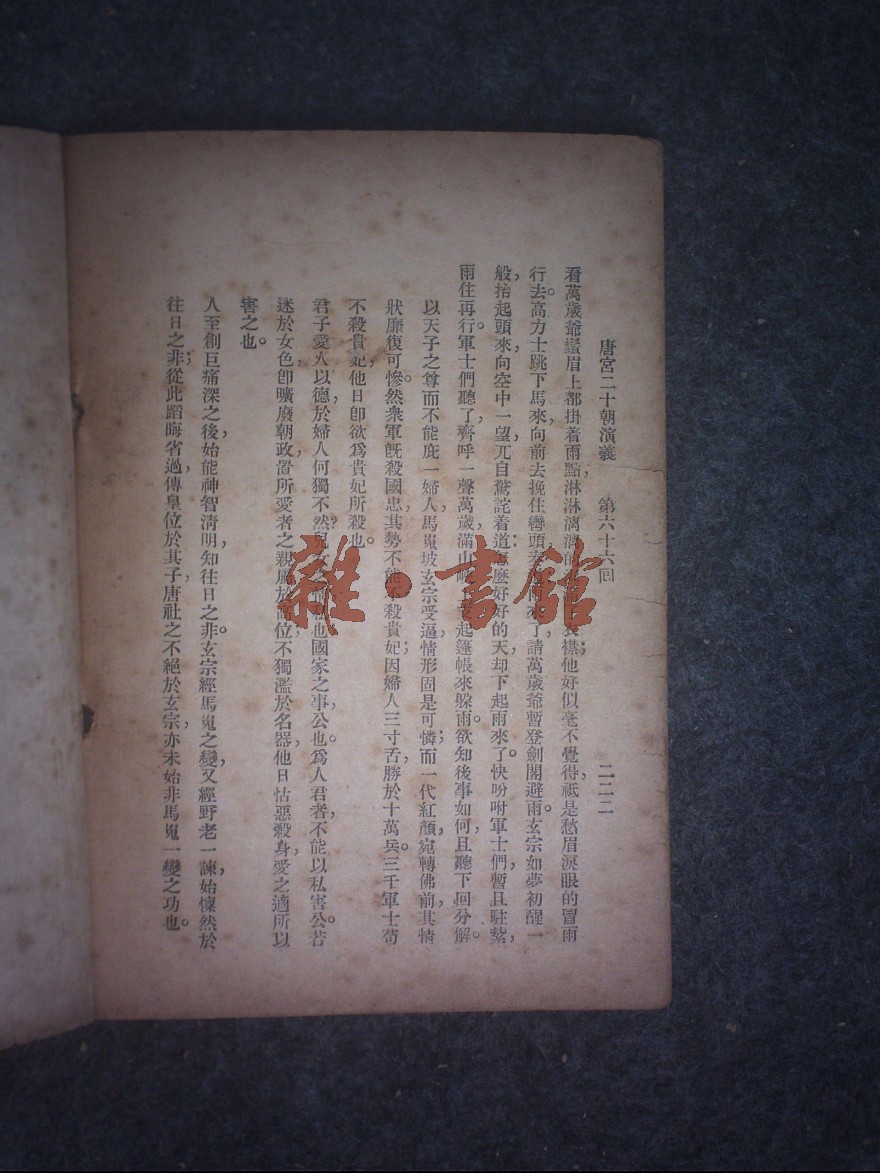 唐宮二十朝演義 第六十六回 二二二
看萬歲爺鬢眉上都掛着雨點，淋淋漓漓的 衣襟；他好似毫不覺得，祇是愁眉淚眼的冒雨
行去。高力士跳下馬來，向前去挽住轡頭，奏 來了，請萬歲爺暫登劍閣避雨。玄宗如夢初醒一
般，抬起頭來，向空中一望，兀自驚詫着道：怎麼好好的天，却下起雨來了。快吩咐軍士們，暫且駐紮，
雨住再行。軍士們聽了，齊呼一聲萬歲，滿山 起篷帳來躲雨。欲知後事如何，且聽下回分解。
以天子之尊而不能庇一婦人，馬嵬坡玄宗受逼情形，固是可憐；而一代紅顏，宛轉佛前，其情
狀靡復可慘。然衆軍旣殺國忠，其勢不能不殺貴妃；因婦人三寸舌，勝於十萬兵。三千軍士苟
不殺貴妃，他日卽欲爲貴妃所殺也。
君子愛人以德，於婦人何獨不然？兒女之情，私也，國家之事，公也。爲人君者，不能以私害公。若
迷於女色，卽曠廢朝政，置所愛者之親屬於高位，不獨濫於名器，他日怙惡殺身，愛之適所以
害之也。
人至創巨痛深之後，始能神智清明，知往日之非。玄宗經馬嵬之變，又經野老一諫，始憬然於
往日之非；從此蹈晦省過，傳皇位於其子，唐社之不絕於玄宗，亦未始非馬嵬一變之功也。
雜·書館